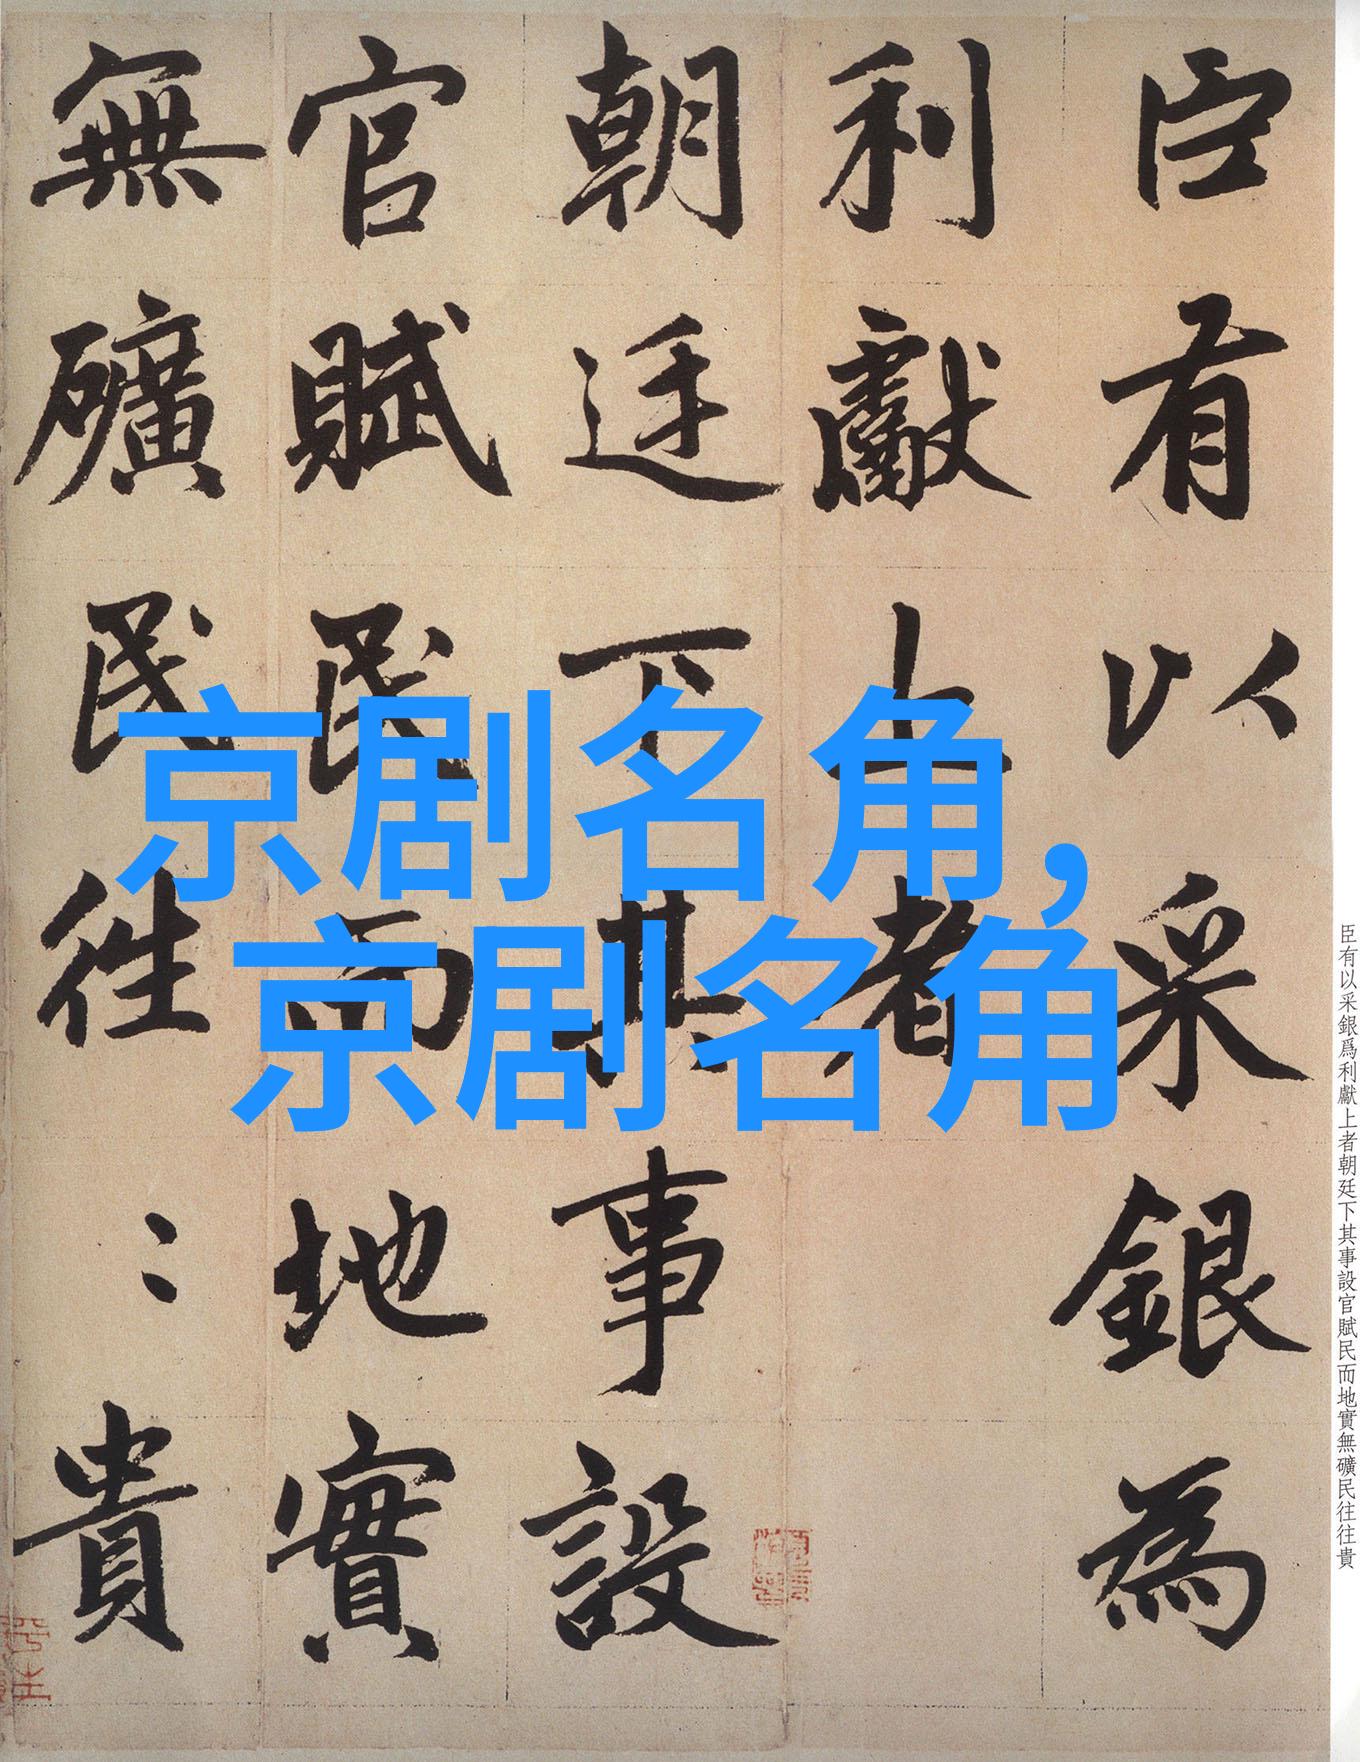 臣有以采銀為
利獻上者
朝廷下其事設
官賦民而地實
無礦民往〻貴
京剧名角，
京剧名角
臣有以采銀爲利獻上者朝廷下其事設官賦民而地實無礦民往往貴